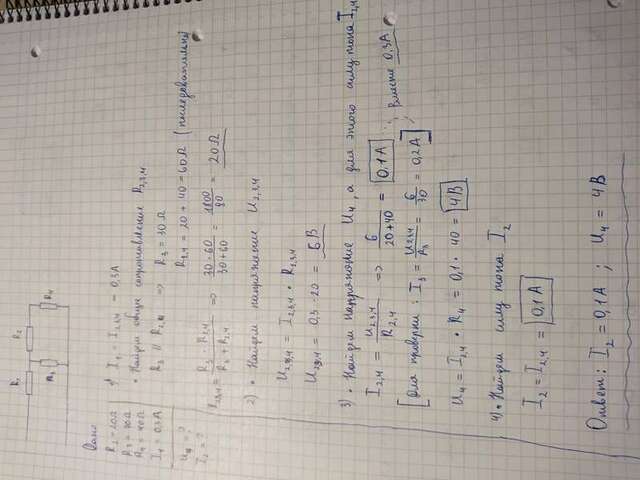 R₁
R₂
R₃
R₄
Дано
R₂ = 20Ω
R₃ = 30Ω
R₄ = 40Ω
I₁ = 0,3A
U₄ = ?
I₂ = ?
1) I₁ = I₂,₃,₄ = 0,3A
• Найдём общее сопротивление R₂,₃,₄
R₃ || R₂,₄ => R₃ = 30Ω
R₂,₄ = 20 + 40 = 60Ω (последовательно)
R₂,₃,₄ = R₃ · R₂,₄ / R₃ + R₂,₄ => 30 · 60 / 30 + 60 = 1800 / 90 = 20Ω
2) • Найдём напряжение U₂,₃,₄
U₂,₃,₄ = I₂,₃,₄ · R₂,₃,₄
U₂,₃,₄ = 0,3 · 20 = 6В
3) • Найдём напряжение U₄, а для этого силу тока I₂,₄
I₂,₄ = U₂,₃,₄ / R₂,₄ => 6 / 20+40 = 0,1A
[Для проверки: I₃ = U₂,₃,₄ / R₃ = 6 / 30 = 0,2A]; вместе 0,3A
U₄ = I₂,₄ · R₄ = 0,1 · 40 = 4В
4) • Найдём силу тока I₂
I₂ = I₂,₄ = 0,1A
Ответ: I₂ = 0,1A ; U₄ = 4В